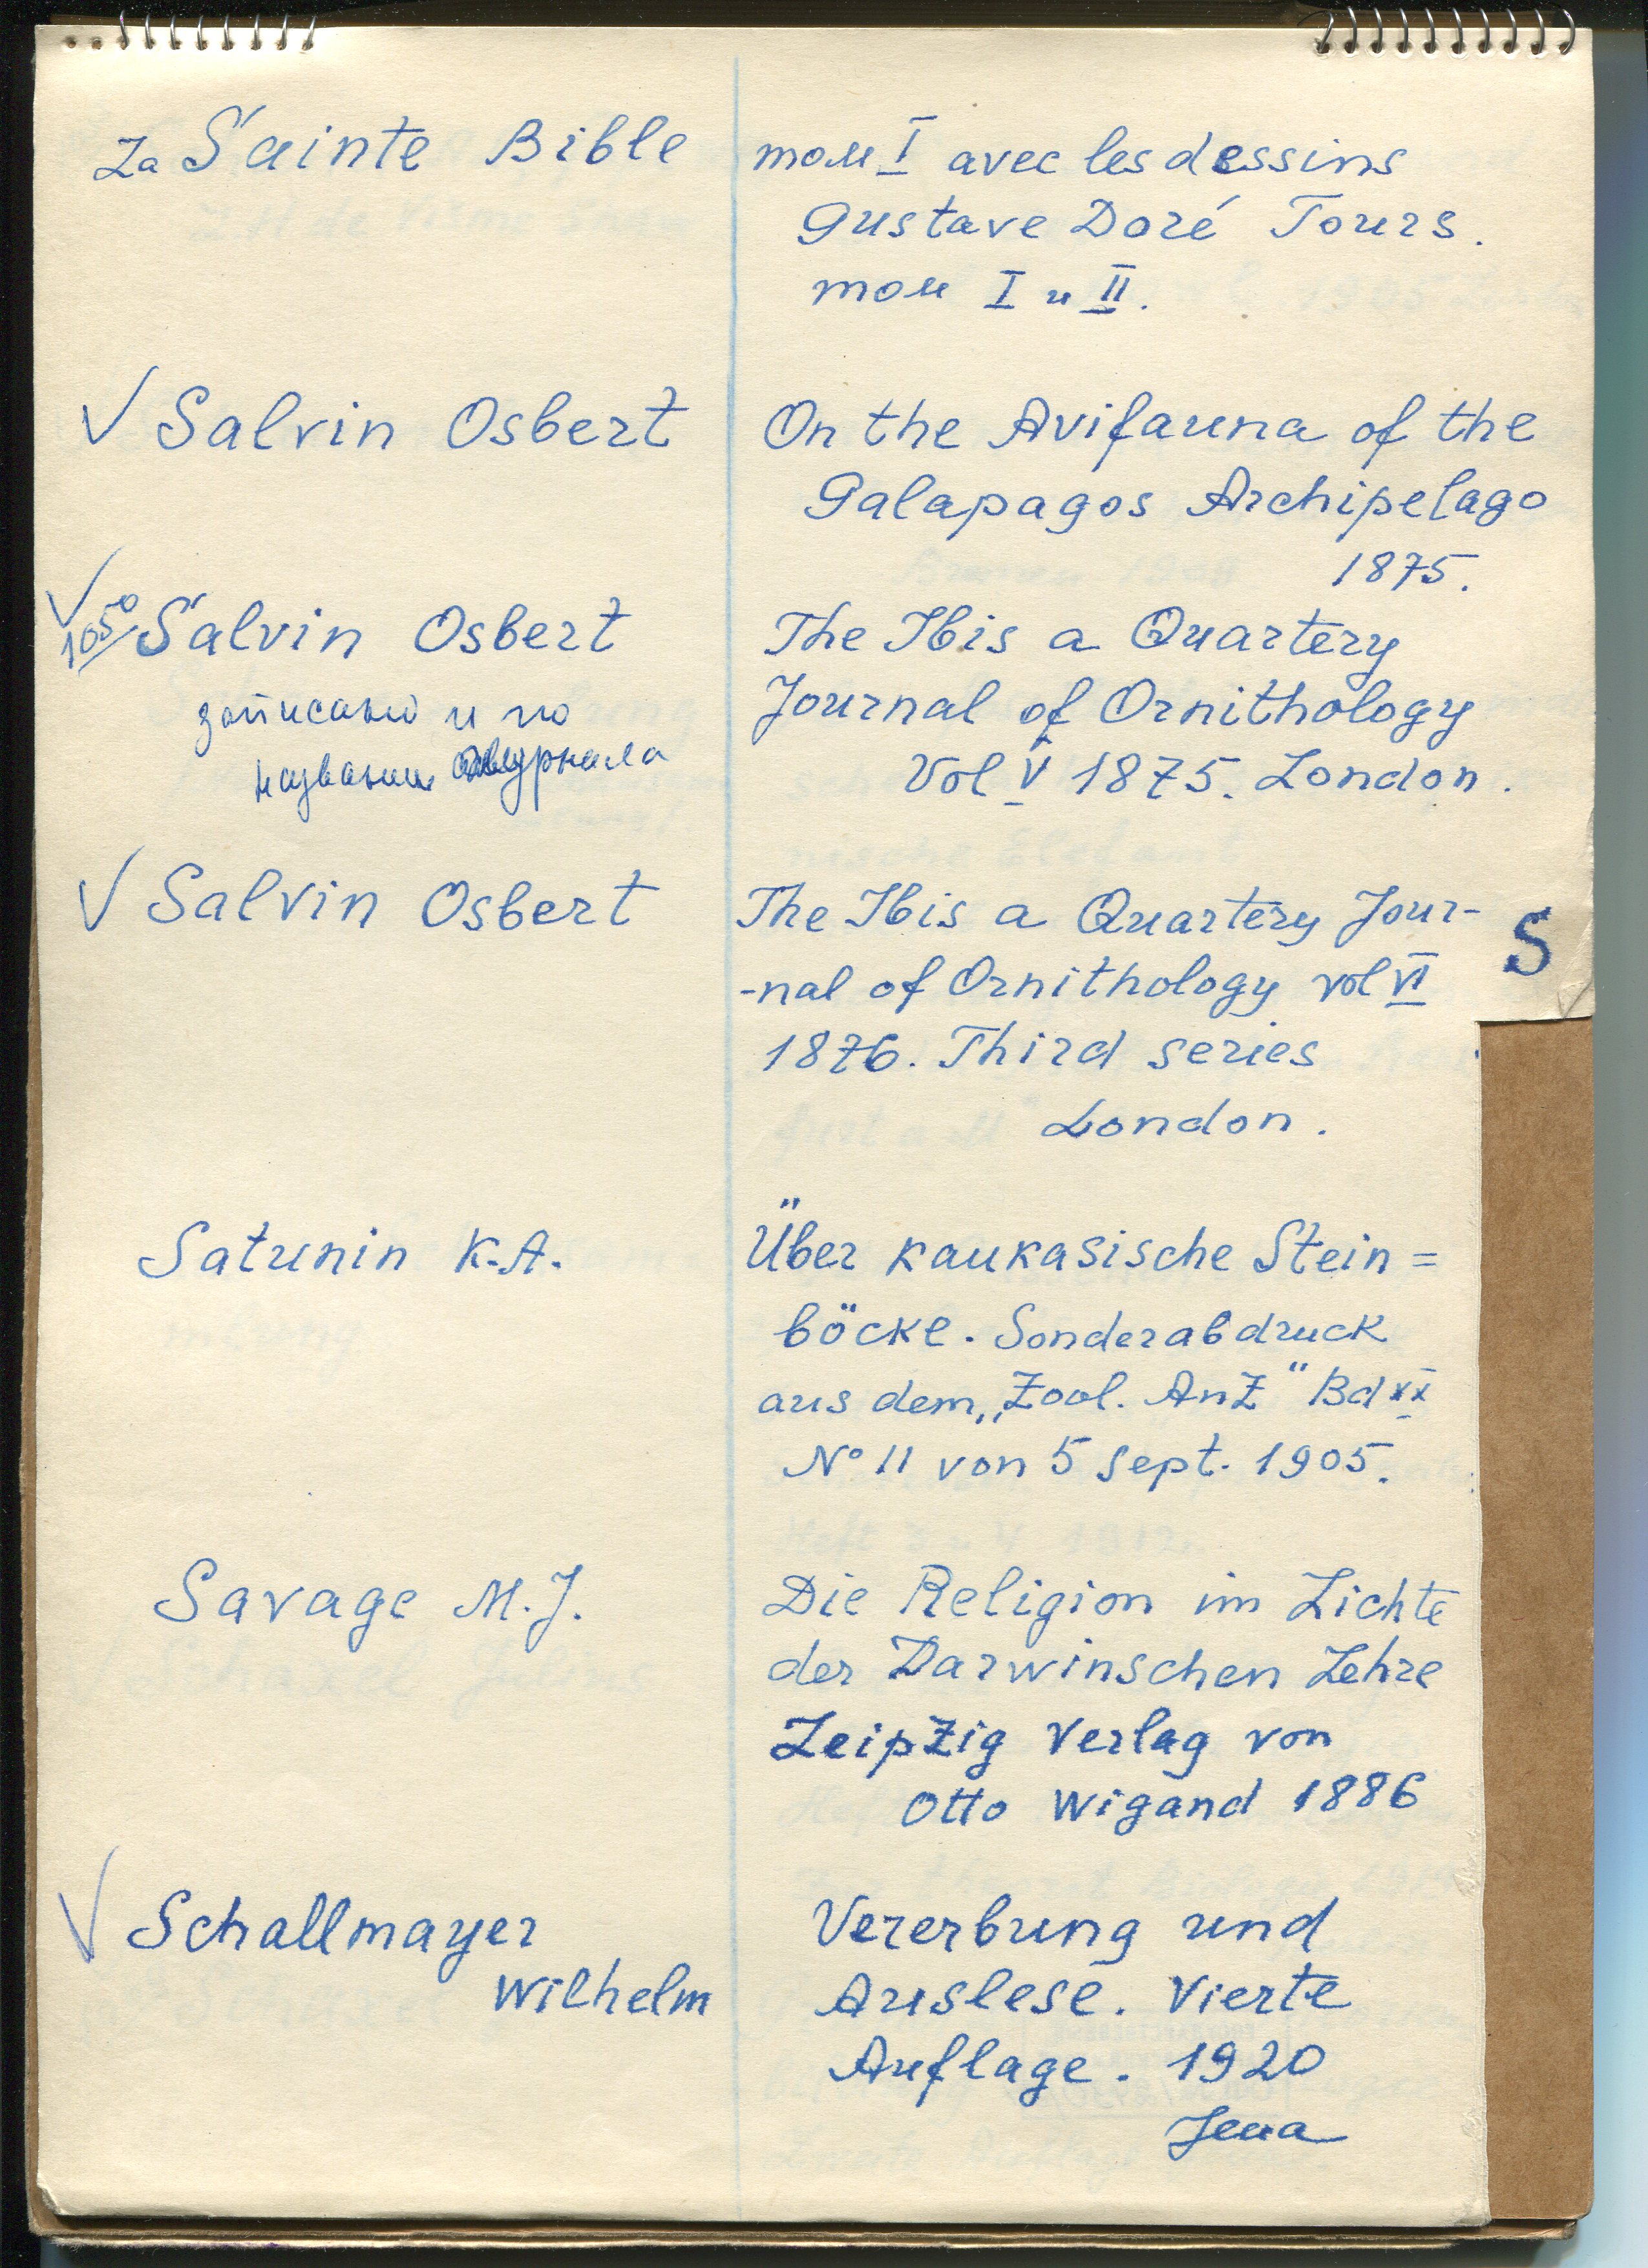 La Sainte Bible
том I avec les dessins
Gustave Doré Tours.
том I и II.
√ Salvin Osbert
On the Avifauna of the
Galapagos Archipelago
1875.
√
1050 Salvin Osbert
записано и по
названию журнала
The Ibis a Quartery
Journal of Ornithology
Vol V 1875. London.
√ Salvin Osbert
The Ibis a Quartery Jour-
-nal of Ornithology vol VI
1876. Third series
London.
S
Satunin K.A.
Über kaukasische Stein=
böcke. Sonderabdruck
aus dem „Zool. Anz" Bd XX
№ 11 von 5 Sept. 1905.
Savage M.J.
Die Religion im Lichte
der Darwinschen Lehre
Leipzig Verlag von
Otto Wigand 1886
√ Schallmayer
Wilhelm
Vererbung und
Auslese. Vierte
Auflage. 1920
Jena